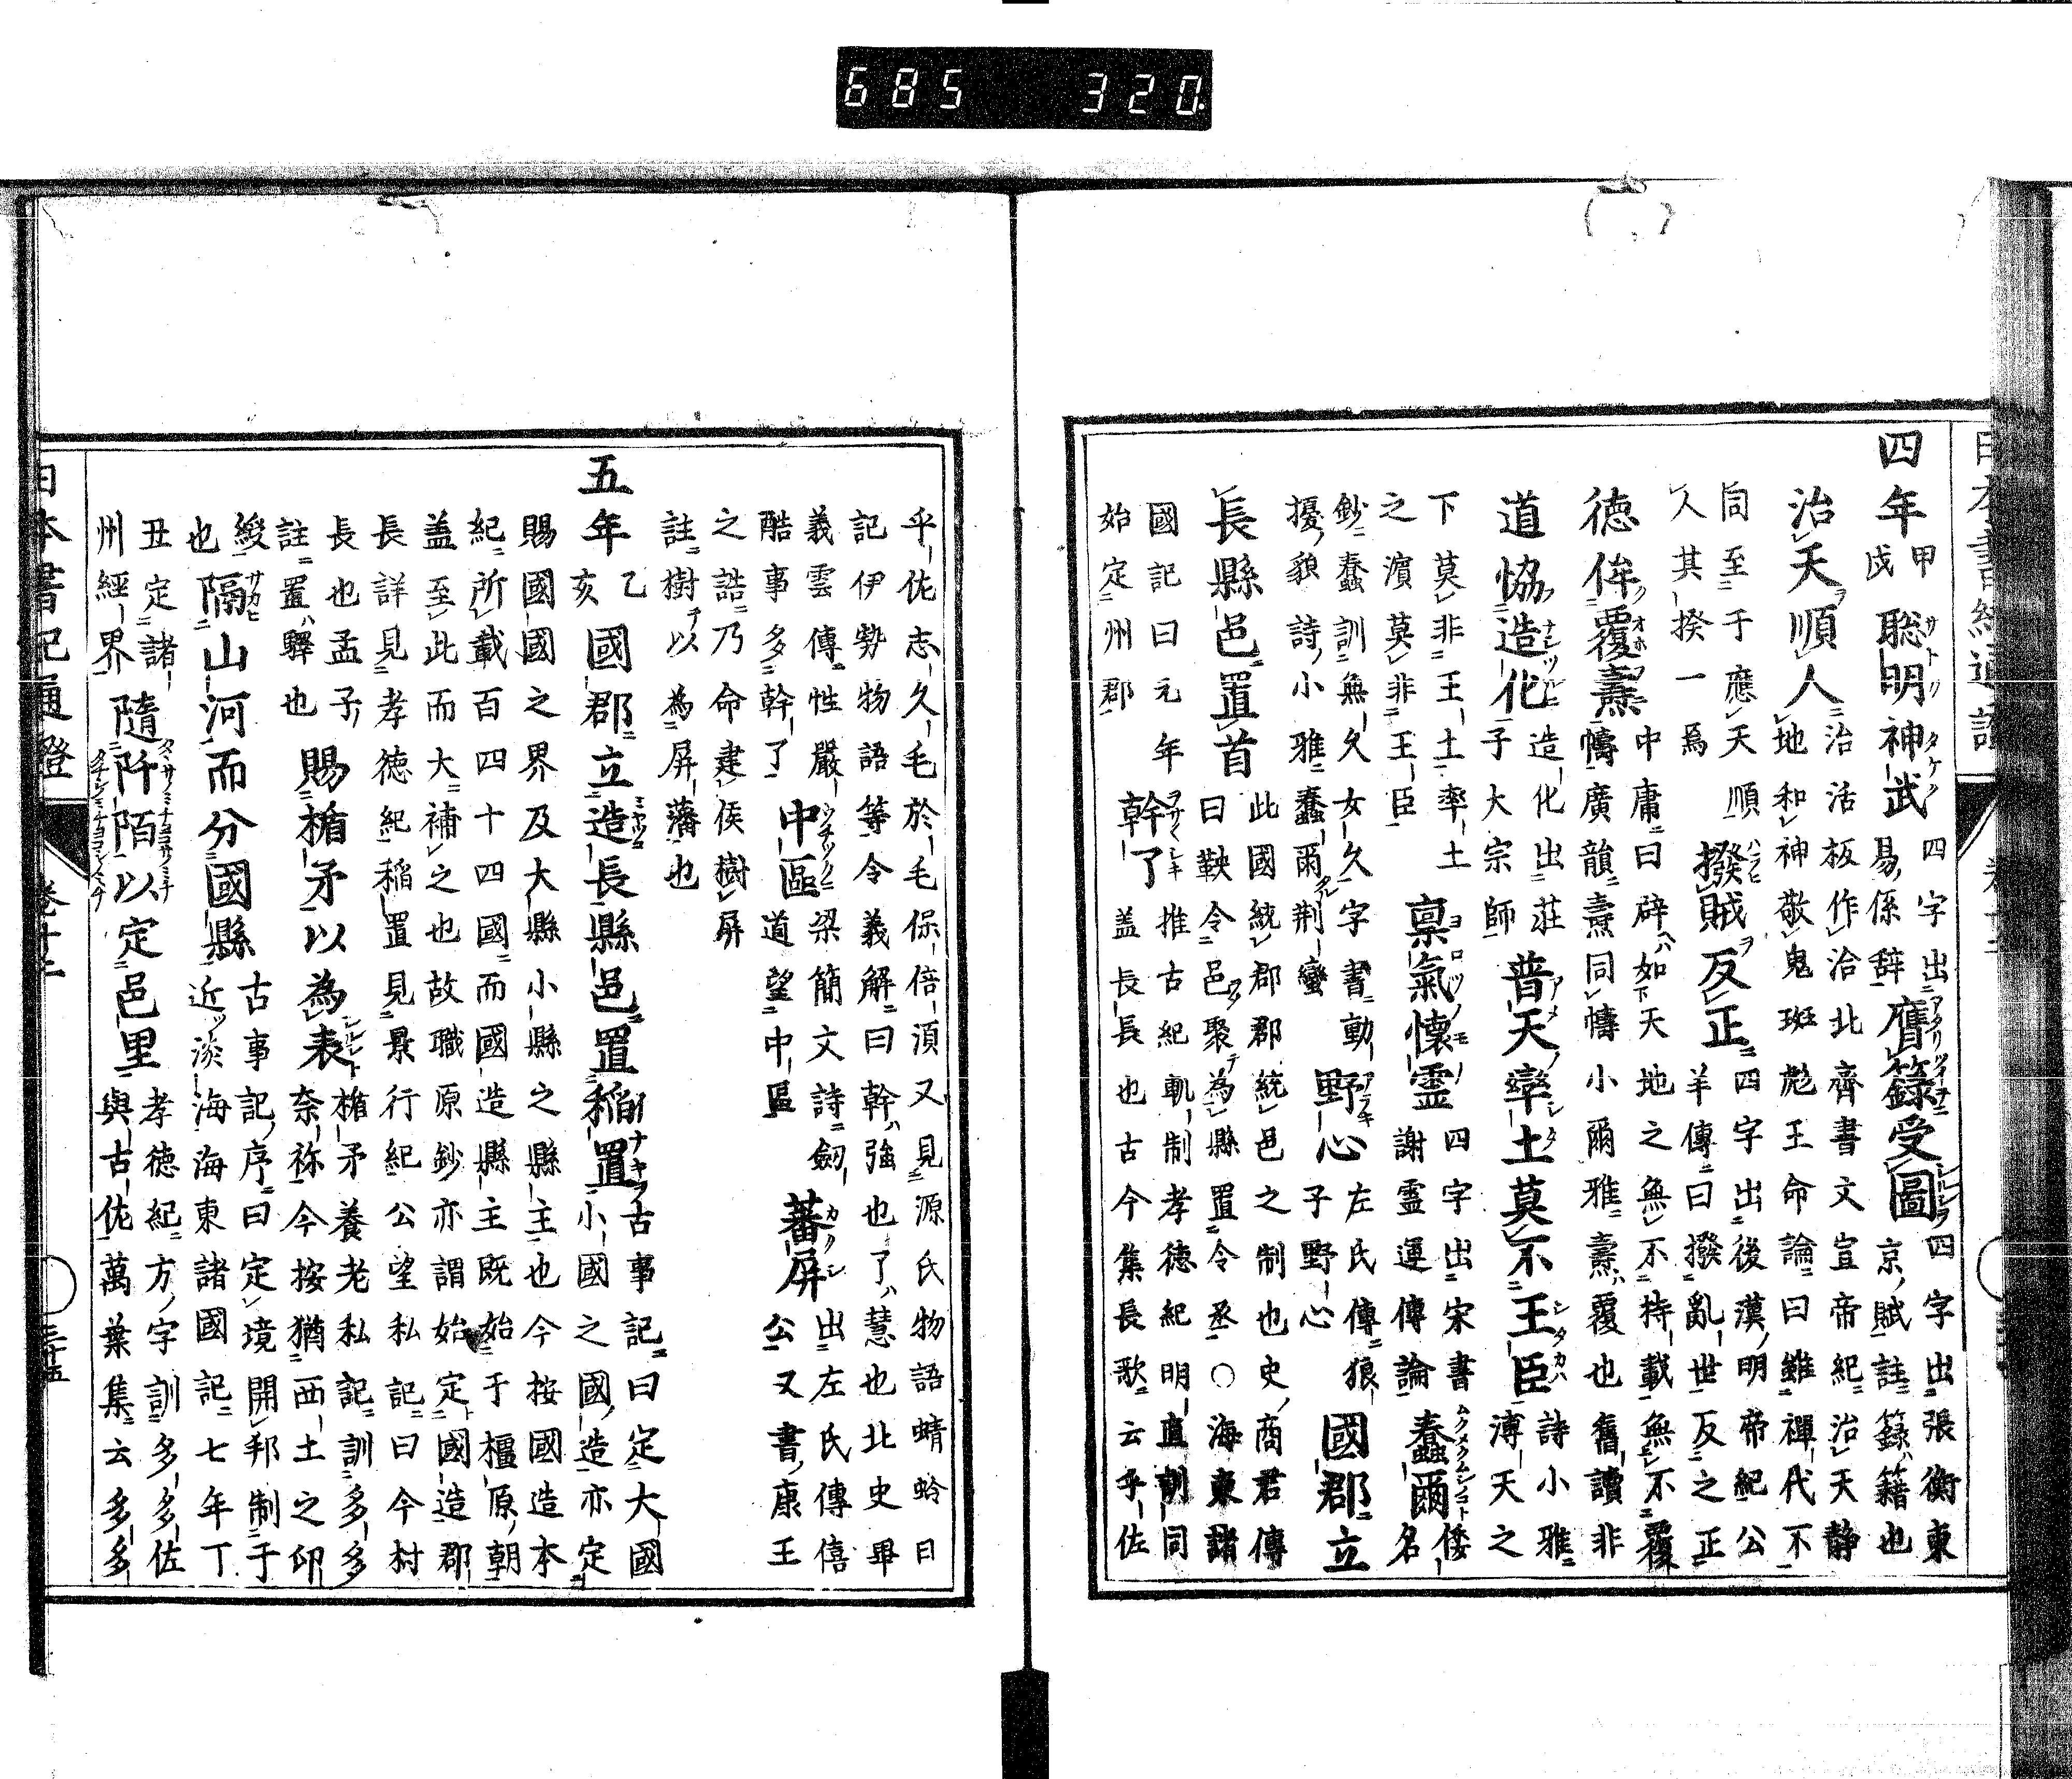 四年
甲
戌
聡明神武
四字出
易係辞
膺籙受圖
四字出張衡東
京賦註籙籍也
治天順人
治活板作洽北齊書文宣帝紀治天静
地和神敬鬼班彪王命論曰雖禪代不
同至于應天順
人其揆一焉
撥賊反正
四字出後漢明帝紀公
羊傳曰撥亂世反之正
徳侔覆燾
中庸曰辟如天地之無不持載無不覆
幬廣韻燾同幬小爾雅燾覆也舊讀非
道恊造化
造化出莊
子大宗師
普天率土莫不王臣
詩小雅
溥天之
下莫非王土率土
之濱莫非王臣
禀氣懷霊
四字出宋書
謝霊運傳論
蠢爾
倭
名
鈔蠢訓無久女久字書動
擾貌詩小雅蠢爾荆蠻
野心
左氏傳狼
子野心
國郡立
長縣邑置首
此國統郡郡統邑之制也史商君傳
曰鞅令邑聚為縣置令丞○海東諸
國記曰元年
始定州郡
幹了
推古紀軌制孝徳紀明直訓同
盖長長也古今集長歌云乎佐
乎佐志久毛於毛保倍湏又見源氏物語蜻蛉日
記伊勢物語等令義解曰幹強也了慧也北史畢
義雲傳性嚴
酷事多幹了
中區
梁簡文詩劒
道望中區
蕃屏
出左氏傳僖
公又書康王
之誥乃命建侯樹屏
註樹以為屏藩也
五年
乙
亥
國郡立造長縣邑置稲置
古事記曰定大國
小國之國造亦定
賜國國之界及大縣小縣之縣主也今按國造本
紀所載百四十四國而國造縣主既始于橿原朝
盖至此而大補之也故職原鈔亦謂始定國造郡
長詳見孝徳紀稲置見景行紀公望私記曰今村
長也孟子
註置驛也
賜楯矛以為表
楯矛養老私記訓多多
奈祢今按猶西土之印
綬
也
隔山河而分國縣
古事記序曰定境開邦制于
近淡海海東諸國記七年丁
丑定諸
州經界
隨阡陌以定邑里
孝徳紀方字訓多多佐
與古佐萬葉集云多多
日本書紀通證
卷十二
三十五